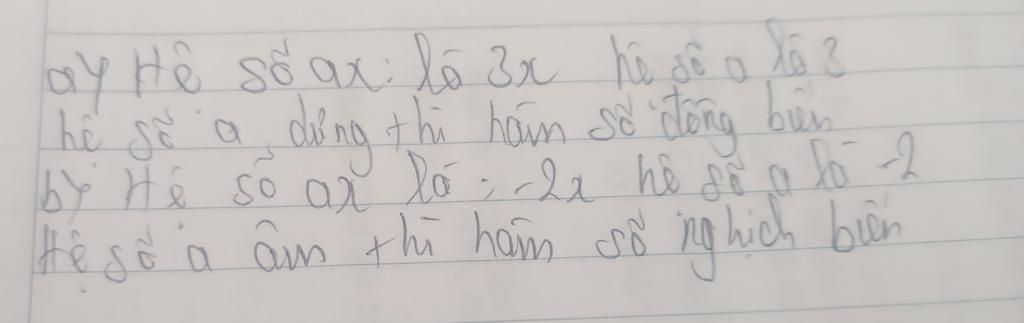 a) Hệ số ax: là 3x hệ số a là 3
hệ số a dứng thì hàm số đồng biến
b) Hệ số ax là: -2x hệ số a là -2
Hệ số a âm thì hàm số nghịch biến